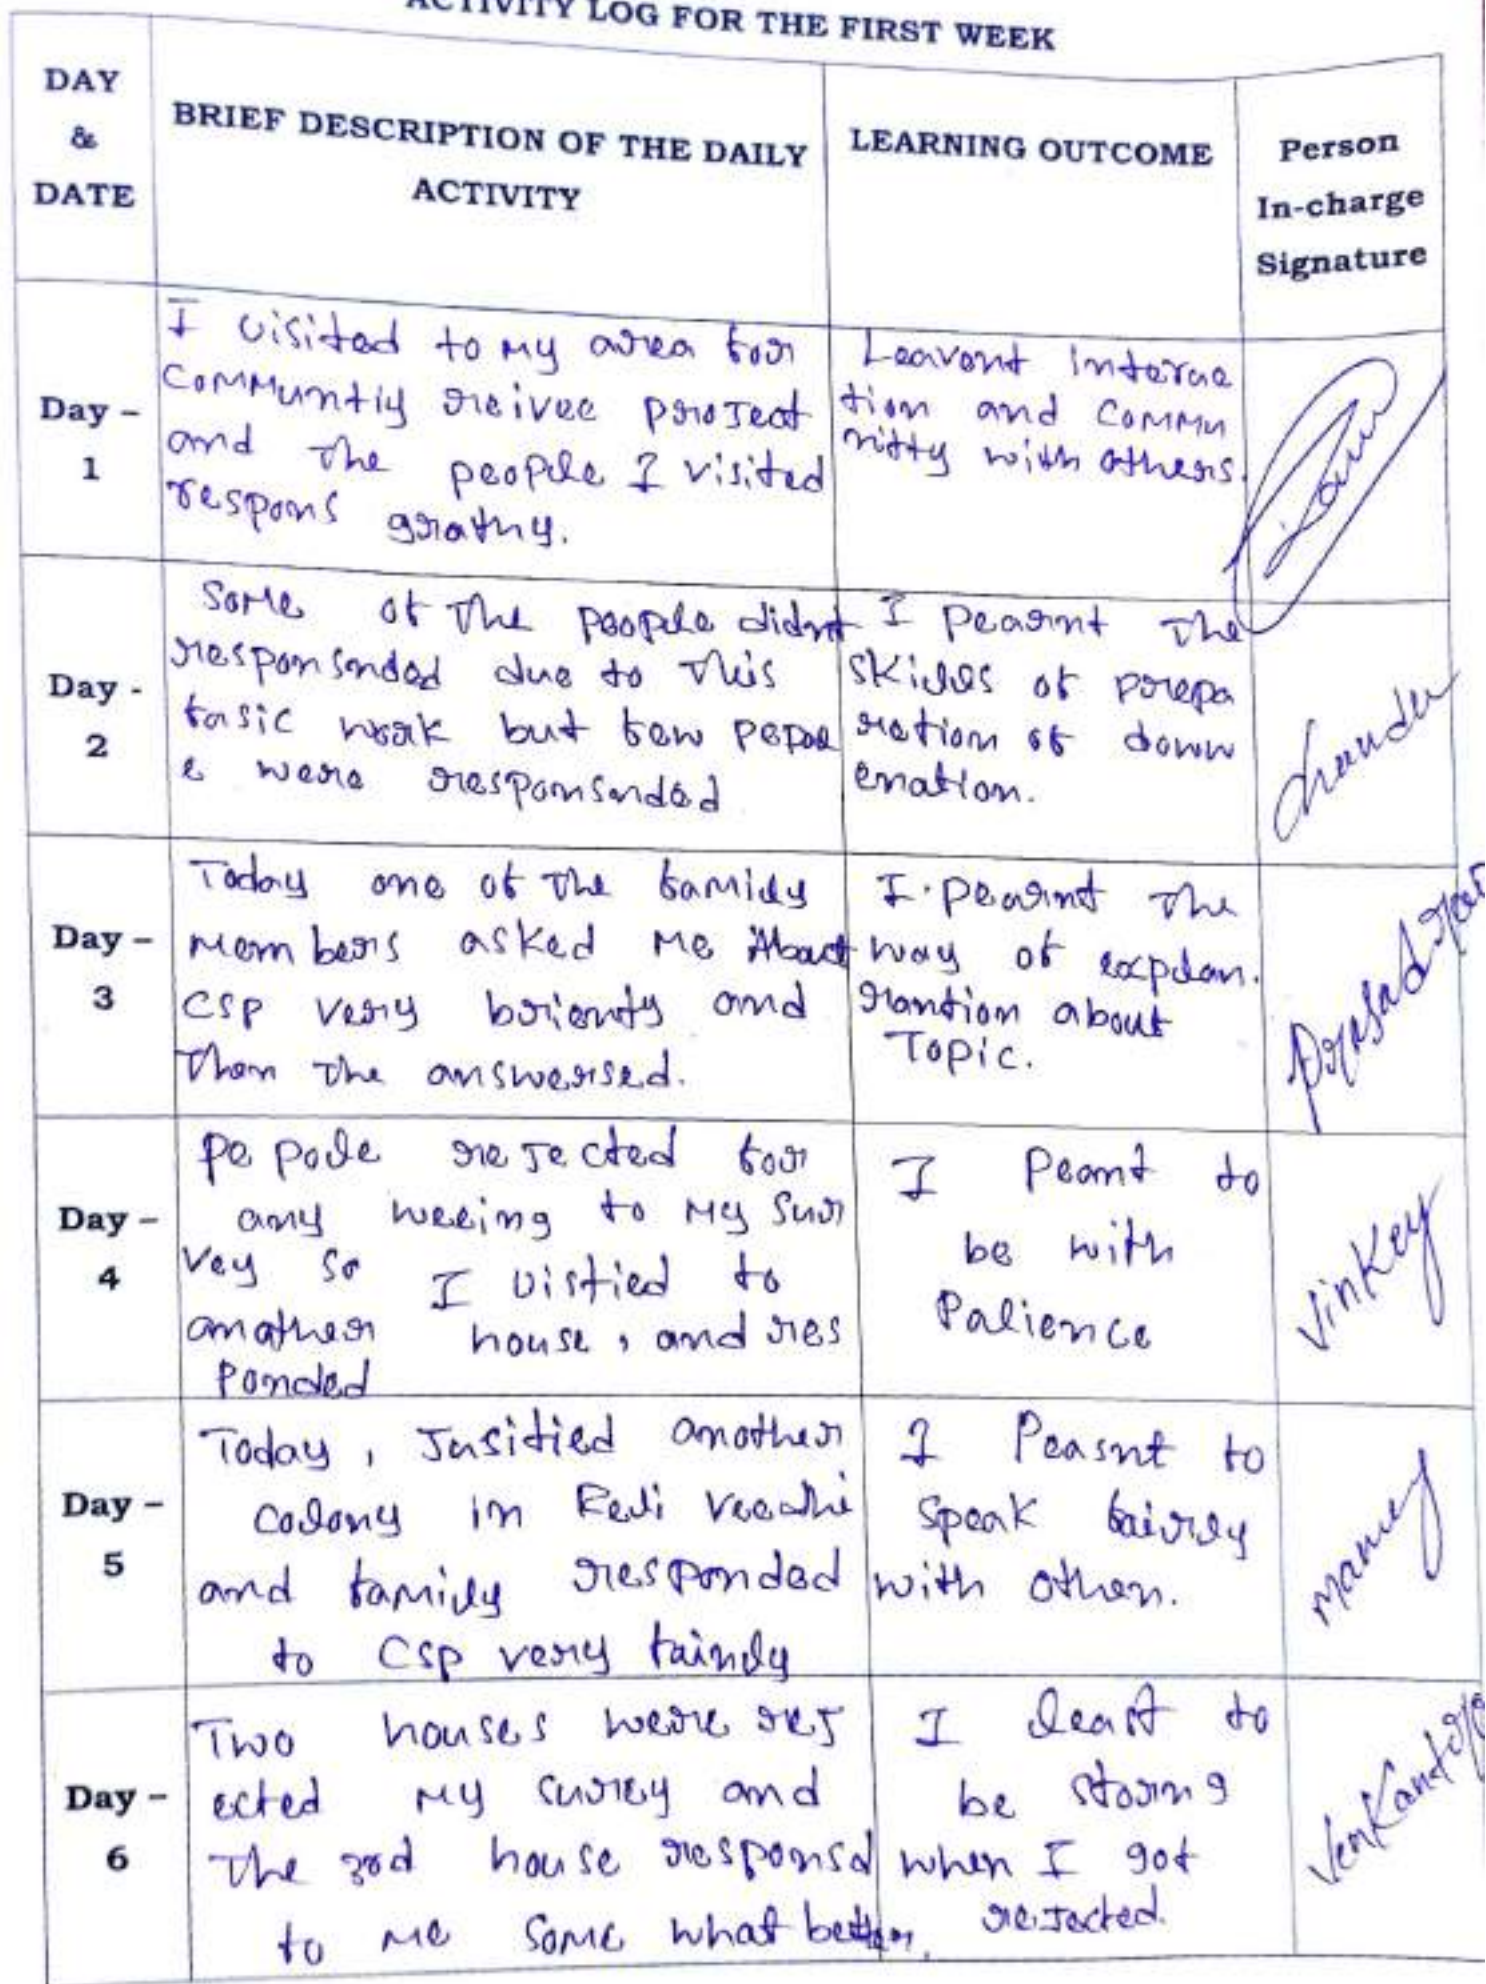 ACTIVITY LOG FOR THE FIRST WEEK
DAY
&
DATE
BRIEF DESCRIPTION OF THE DAILY
ACTIVITY
LEARNING OUTCOME
Person
In-charge
Signature
Day –
1
I visited to my area for
Communtiy reivee project
and the people I visited
respons
Learnt interac
tion and commu
nitty with others.
Day -
2
Some of the people didnt
responsnded due to this
basic work but few
were responsnded
I learnt the
skills of prepa
ration of
Day –
3
Today one of the family
members asked me About
CSP very and
then the answersed.
I learnt the
way of explan
rantion about
Topic.
Prasad
Day –
4
rejected for
any to my sur
vey so I vistied to
another house, and res
ponded
I leant to
be with
Palience
Vinkey
Day –
5
Today, another
colony in
and family responded
to CSP very fairly
I leasnt to
speak fairly
with other.
maney
Day –
6
Two houses were rej
ected my surey and
The 3rd house responsd
to me some what better.
I least to
be storng
when I got
rejected.